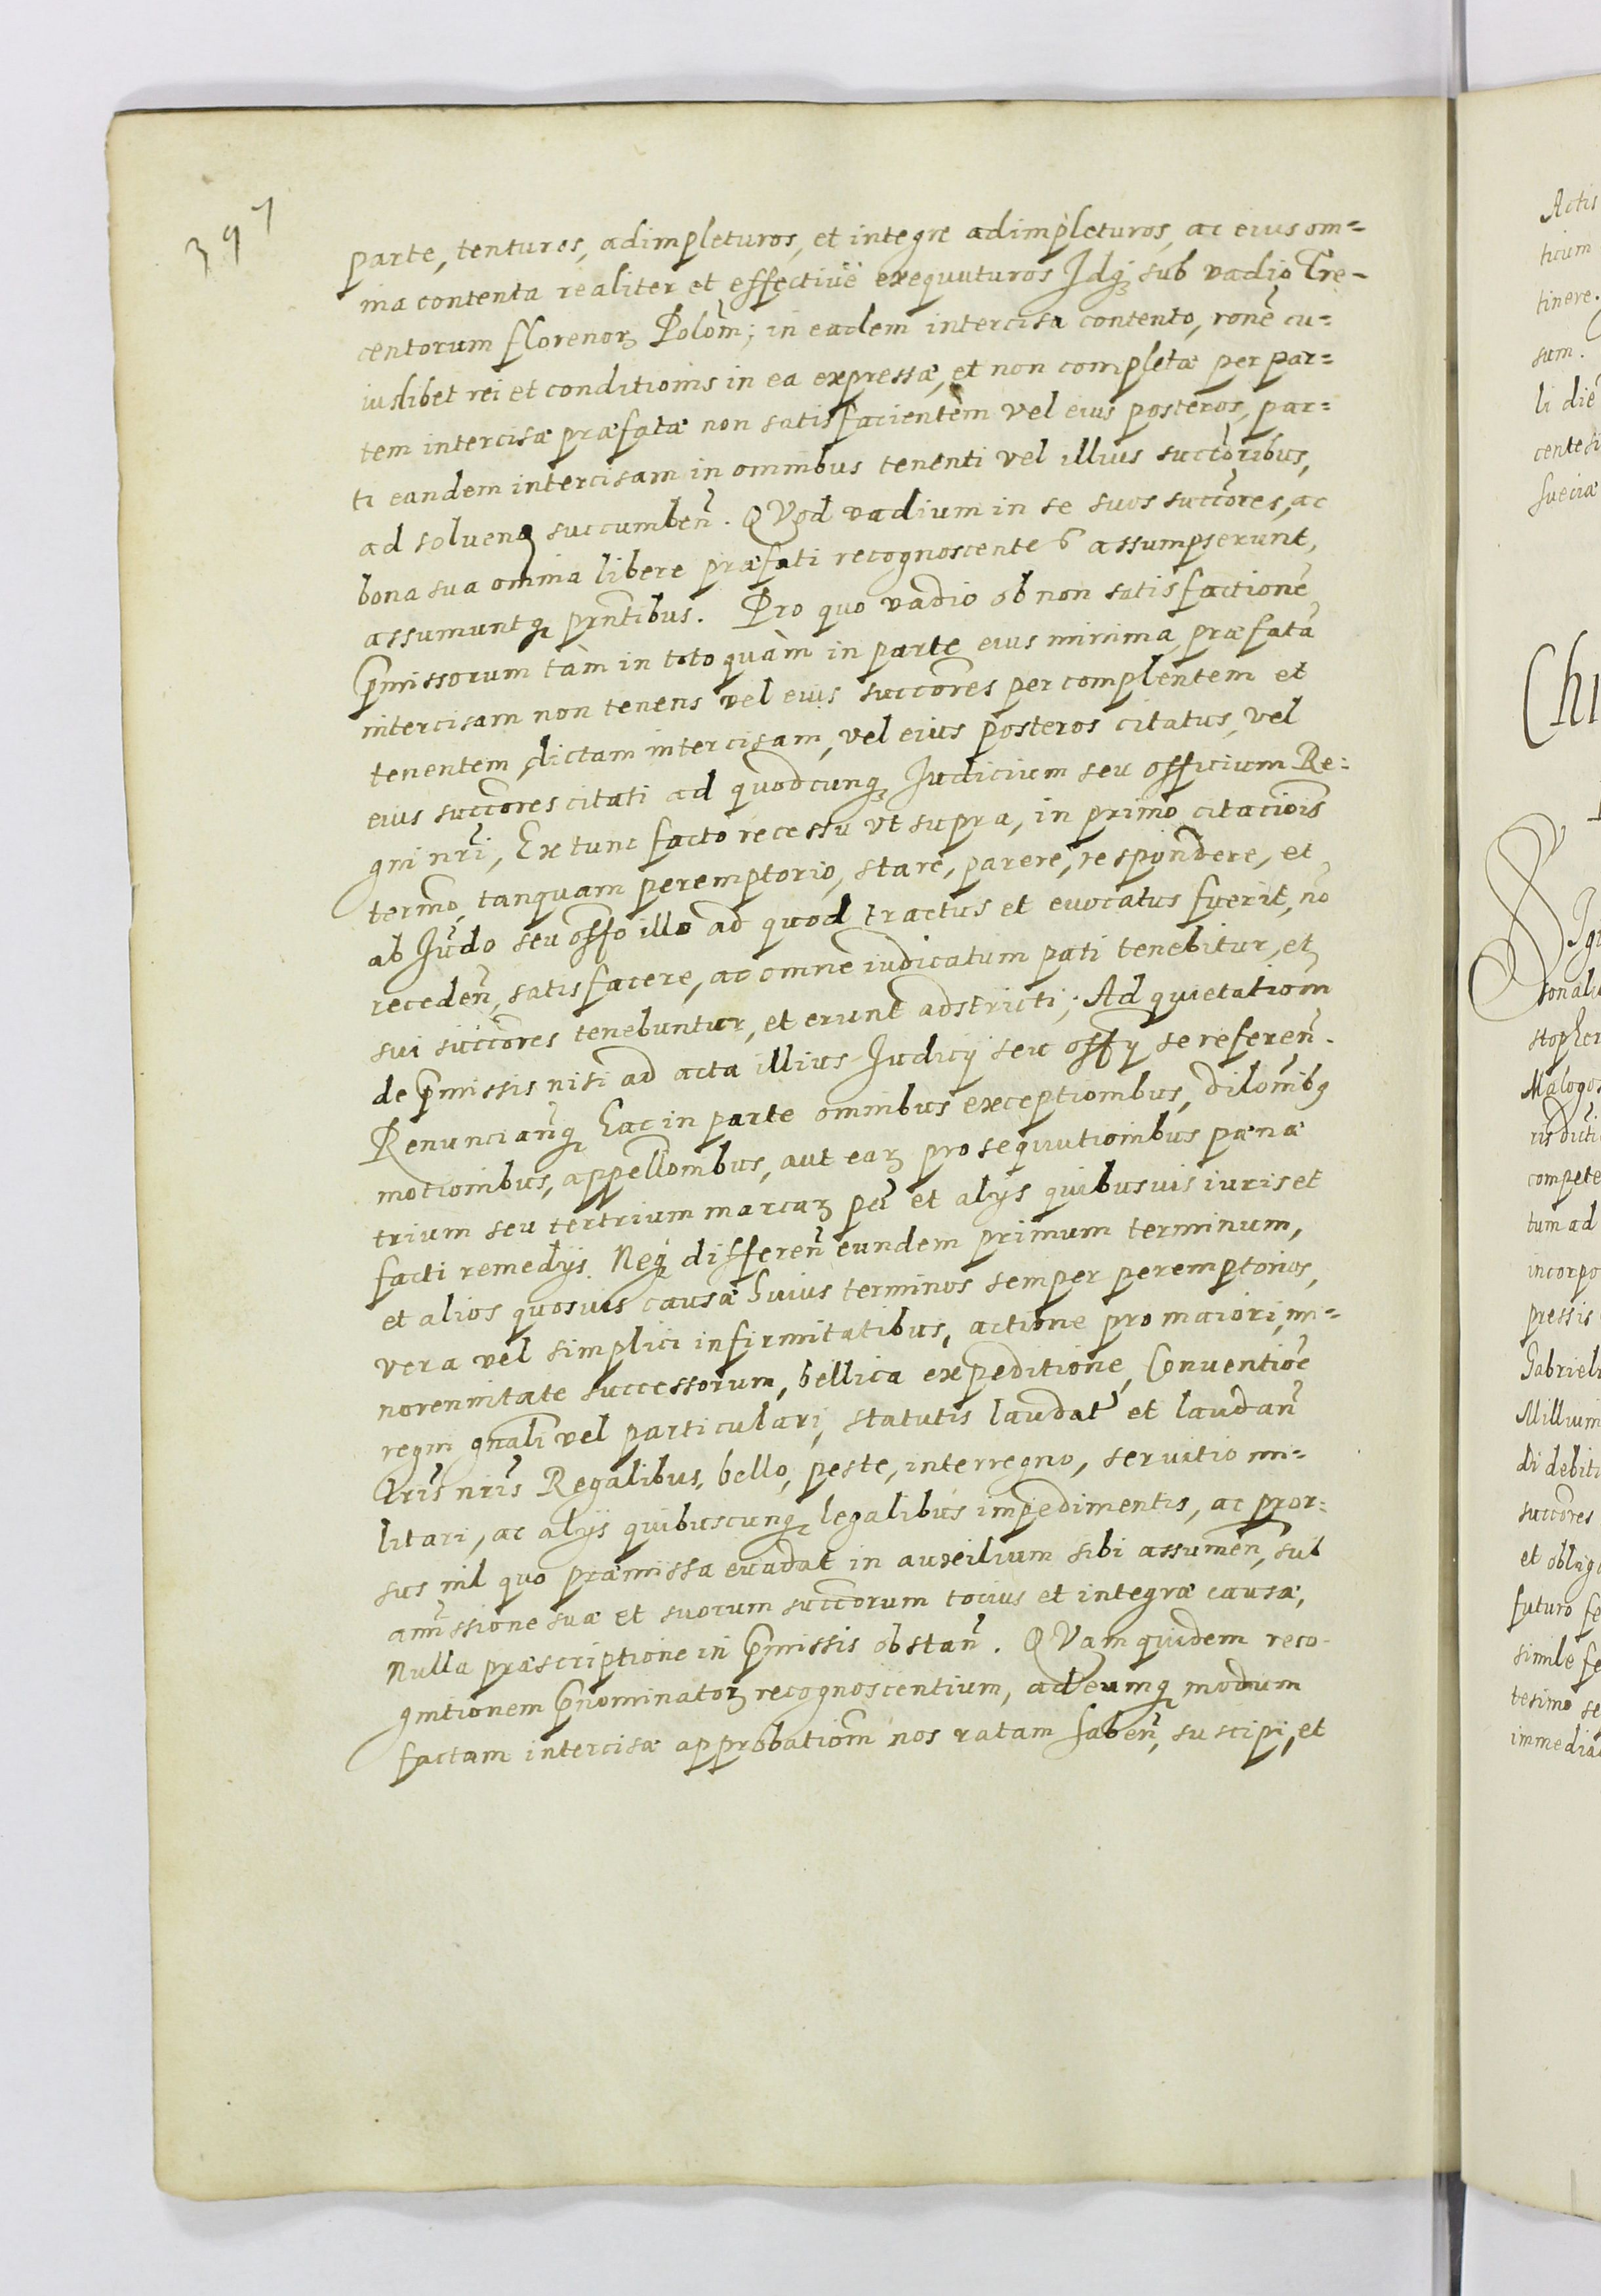 397
parte, tentures, adimpleturos, et integre adimpleturos, ac eius om=
nia contenta realiter et effectiue exequuturos Idq́ sub vadio Tre-
centorum florenoꝝ Polom̃; in eadem intercisa contento, ronẽ cu=
iuslibet rei et conditionis in ea expressæ, et non completæ per par=
tem intercisæ præfatæ non satisfacientem vel eius posteros, par=
ti eandem intercisam in omnibus tenenti vel illius succõribus,
ad soluenð succumbeñ. QVod vadium in se suos succõres, ac
bona sua omnia libere præfati recognoscentes assumpserunt,
assumuntq́ prñtibus. Pro quo vadio ob non satisfactionẽ
p̃missorum tàm in toto quàm in parte eius minima, præfatã
intercisam non tenens vel eius succõres per complentem et
tenentem dictam intercisam, vel eius posteros citatus, vel
eius succõres citati ad quodcunq́ Iudicium seu officium Re=
gni nr̃i, Ex tunc facto recessu vt supra, in primo citaciois̃
term̃o, tanquam peremptorio, stare, parere, respondere, et
ab Iuďo seu off̃o illo ad quod tractus et euocatus fuerit, nõ
recedeñ, satisfacere, ac omne iudicatum pati tenebitur, et
sui succõres tenebuntur, et erunt adstricti; Ad quietatiom̃
de p̃missis nisi ad acta illius Iudicÿ seu offÿ se refereñ.
Renunciañq́ hac in parte omnibus exceptionibus, dilõnibꝫ
motionibus, appellõnibus, aut eaꝝ prosequutionibus pænæ
trium seu tertrium marcaꝝ pẽi et alÿs quibusuis iuris et
facti remedÿs. Neq́ differeñ eundem primum terminum,
et alios quosuis causæ huius terminos semper peremptorios,
vera vel simplici infirmitatibus, actione pro maiori, mi=
norennitate successorum, bellica expeditione, Conuentioẽ
regni gñali vel particulari, statutis laudat̃ et laudañ
Lr̃is nr̃is Regalibus, bello, peste, interregno, seruitio mi=
litari, ac alÿs quibuscunq́ legalibus impedimentis, ac pror=
sus nil quo præmissa euadat in auxilium sibi assumeñ, sub
amĩssione suæ et suorum succõrum tocius et integræ causæ,
Nulla præscriptione in p̃missis obstañ. QVam quidem reco-
gnitionem p̃nominatoꝝ recognoscentium, ad eumq́ modum
factam intercisæ approbatiom̃ nos ratam habeñ, suscipi, et